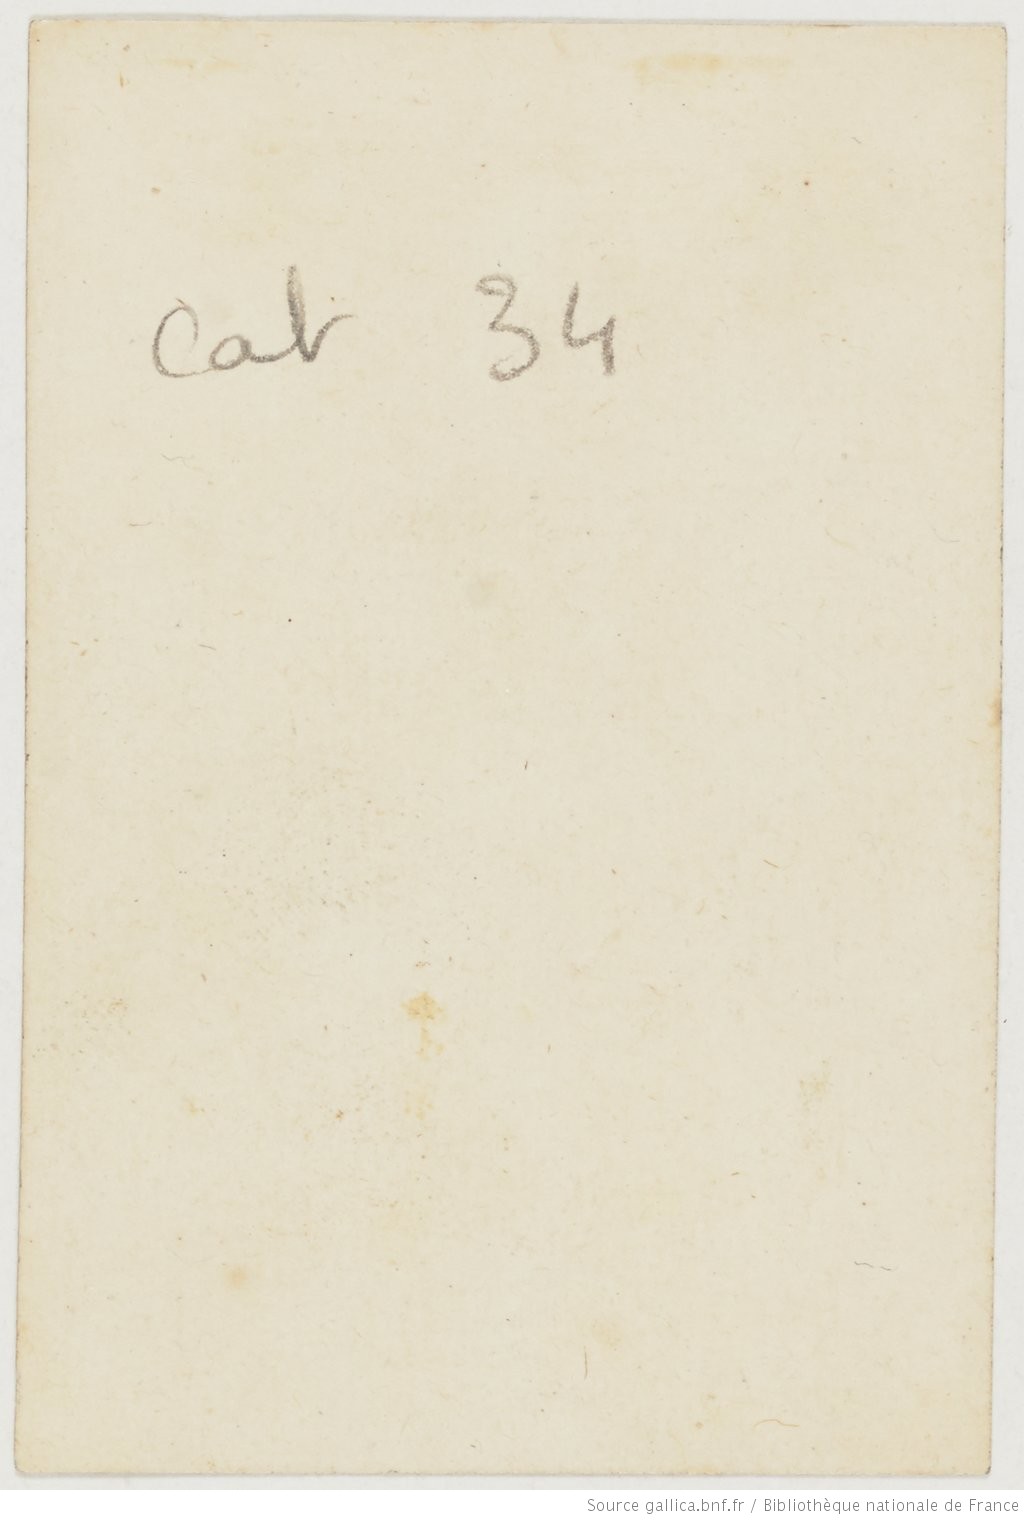 cat 34
Source gallica.bnf.fr / Bibliothèque nationale de France